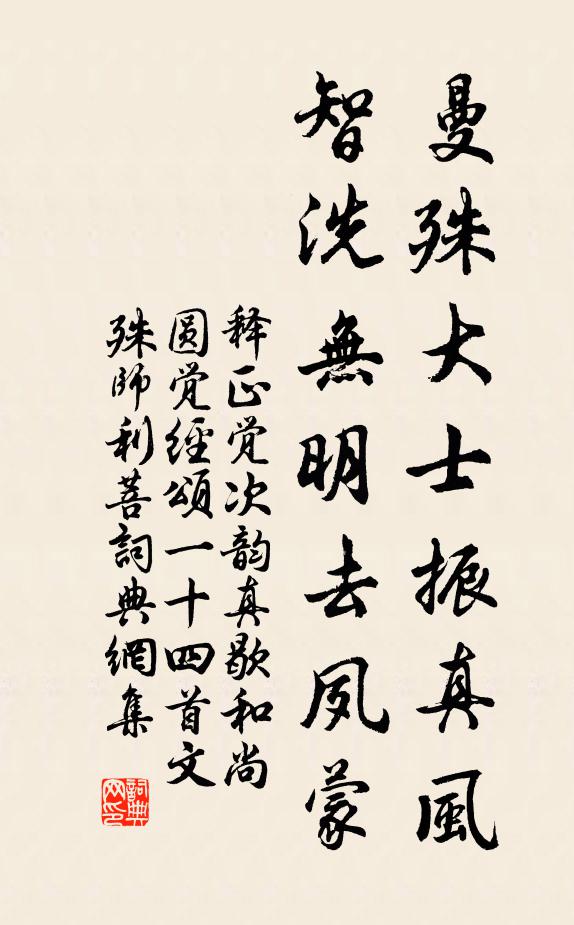 曼殊大士振真風
智洗無明去夙蒙
释正觉次韵真歇和尚
圆觉經頌一十四首文
殊師利菩詞典網集
詞典网印